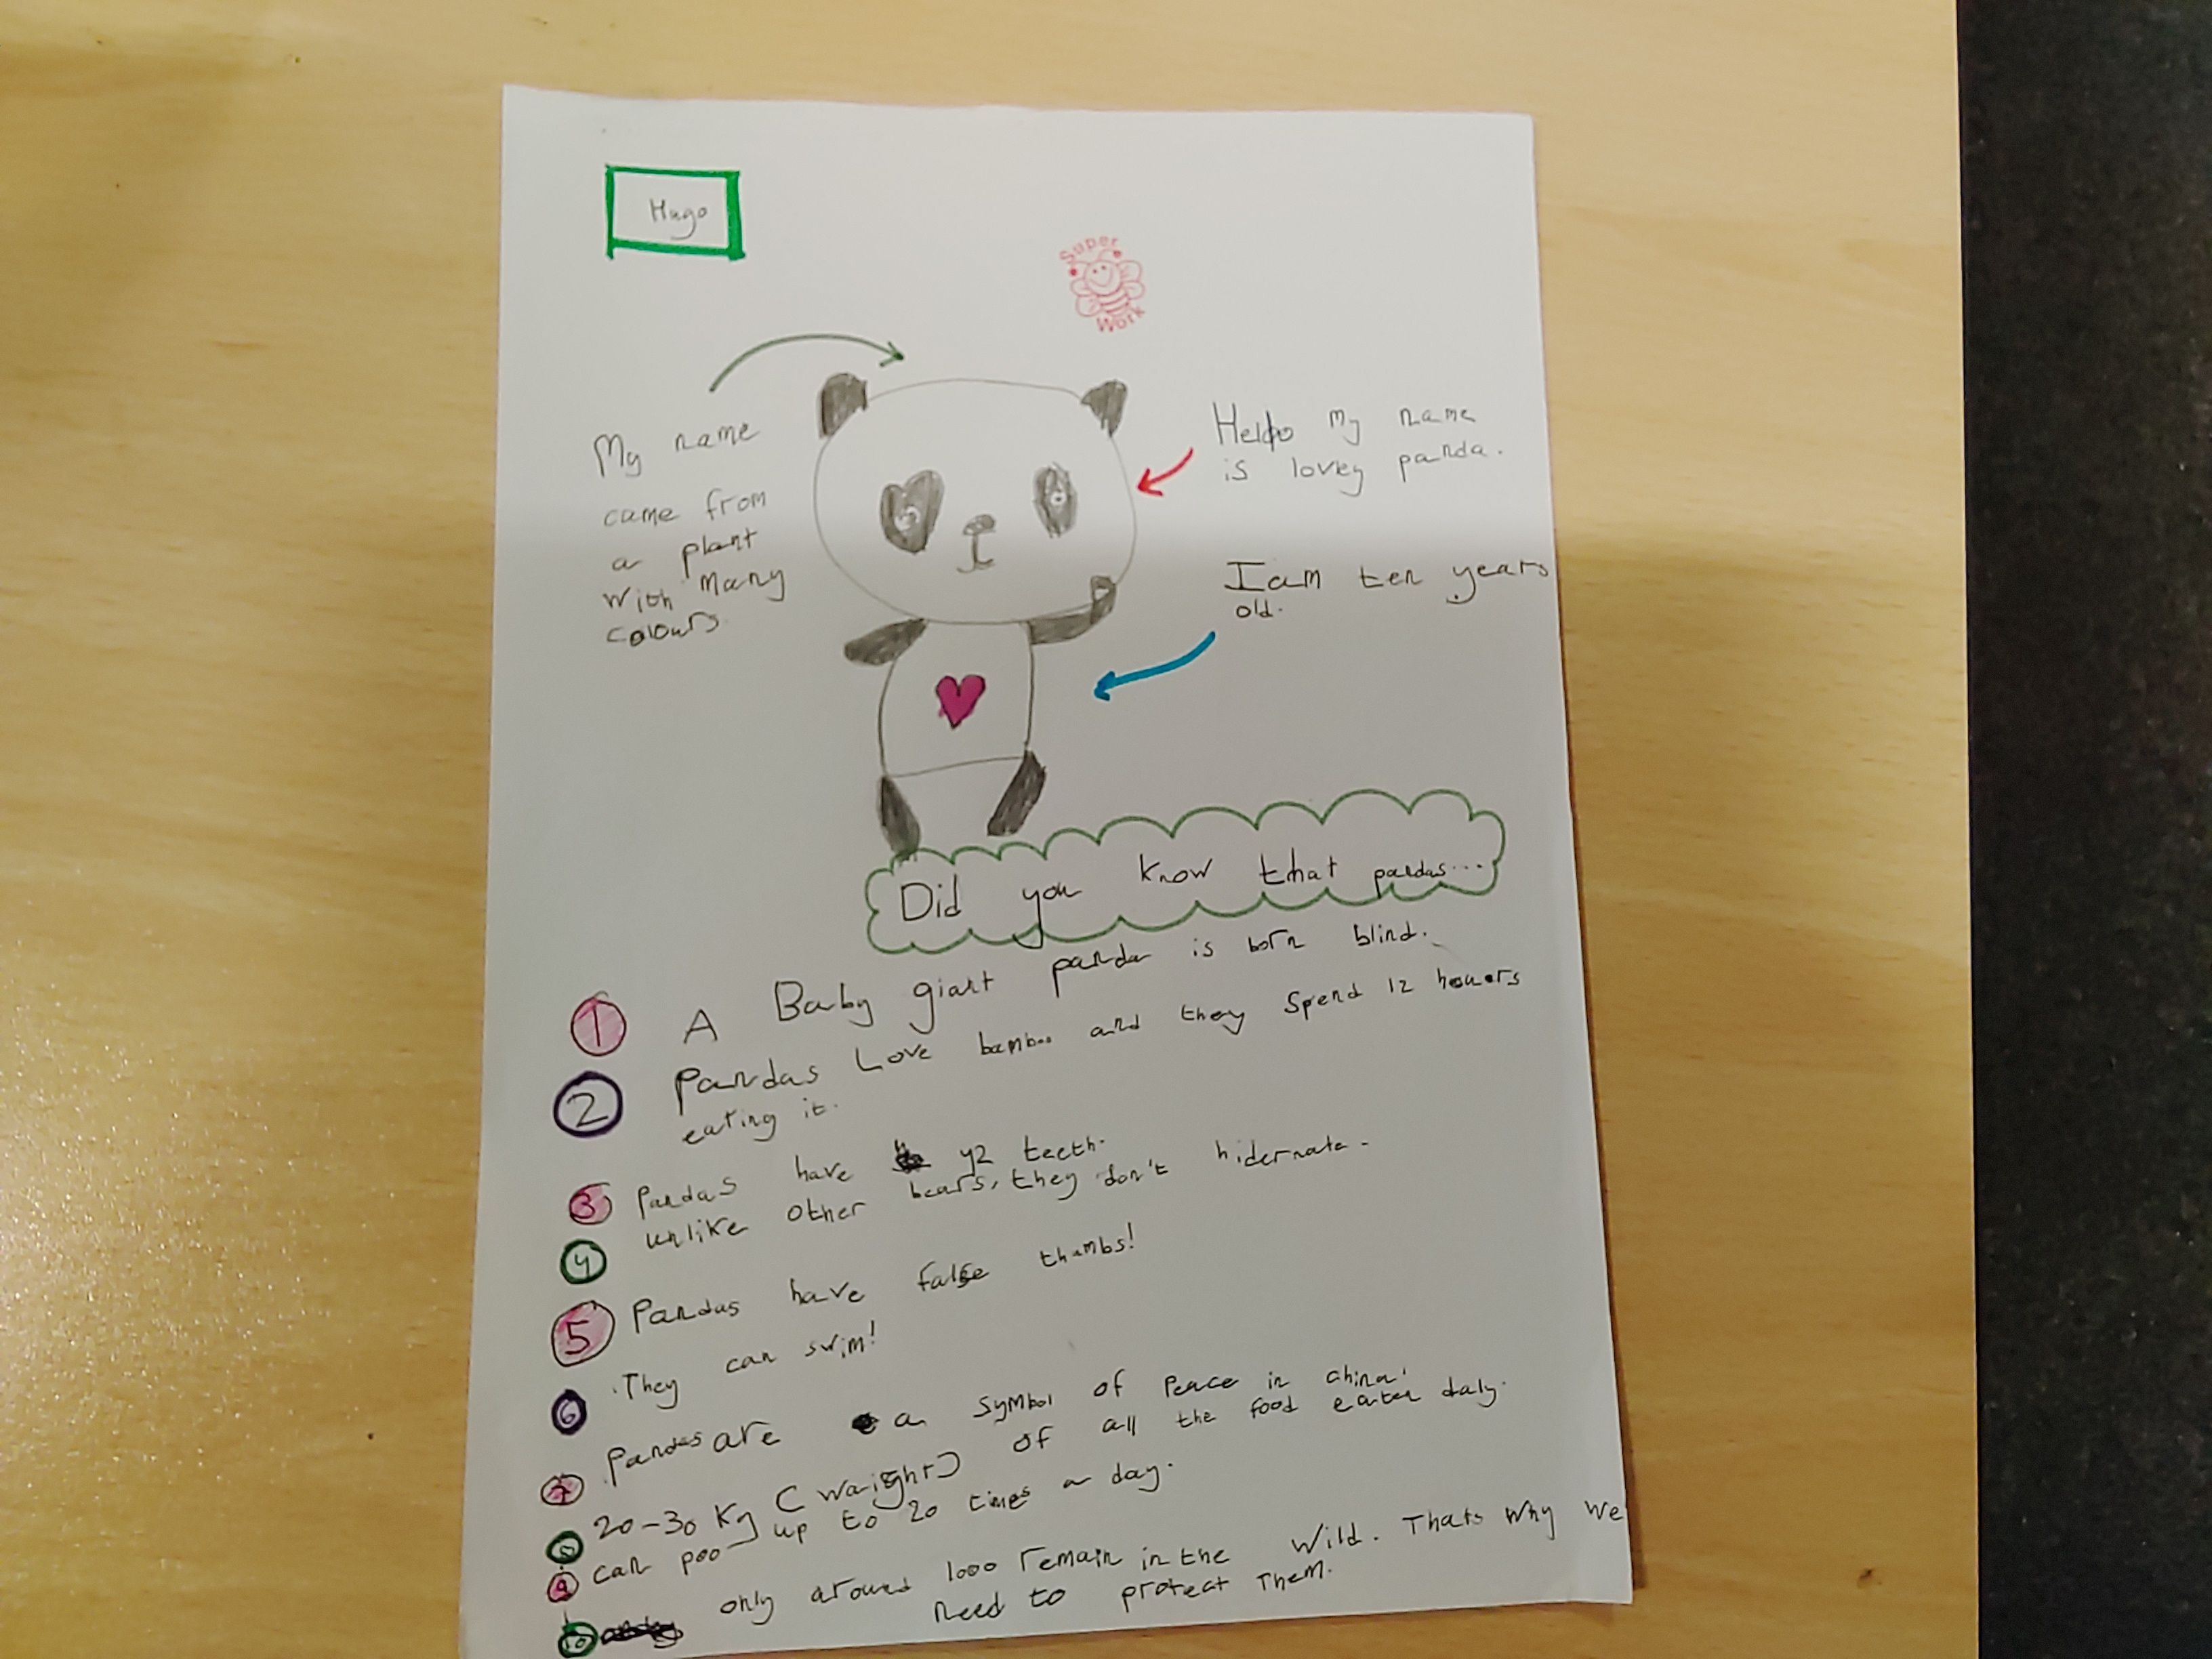 Hugo
Super
Work
My name
came from
a plant
with many
colours.
Hello my name
is lovey panda.
I am ten years
old.
Did you know that pandas...
1 A Baby giant panda is born blind.
2 Pandas Love bamboo and they spend 12 houers
eating it.
3 Pandas have 42 teeth.
4 unlike other bears, they don't hidernate.
5 Pandas have false thumbs!
6 They can swim!
7 Pandas are a symbol of Peace in china.
8 20-30 Kg (waight) of all the food eaten daly.
9 can poo up to 20 times a day.
10 only around 1000 remain in the wild. Thats why we
need to protect them.